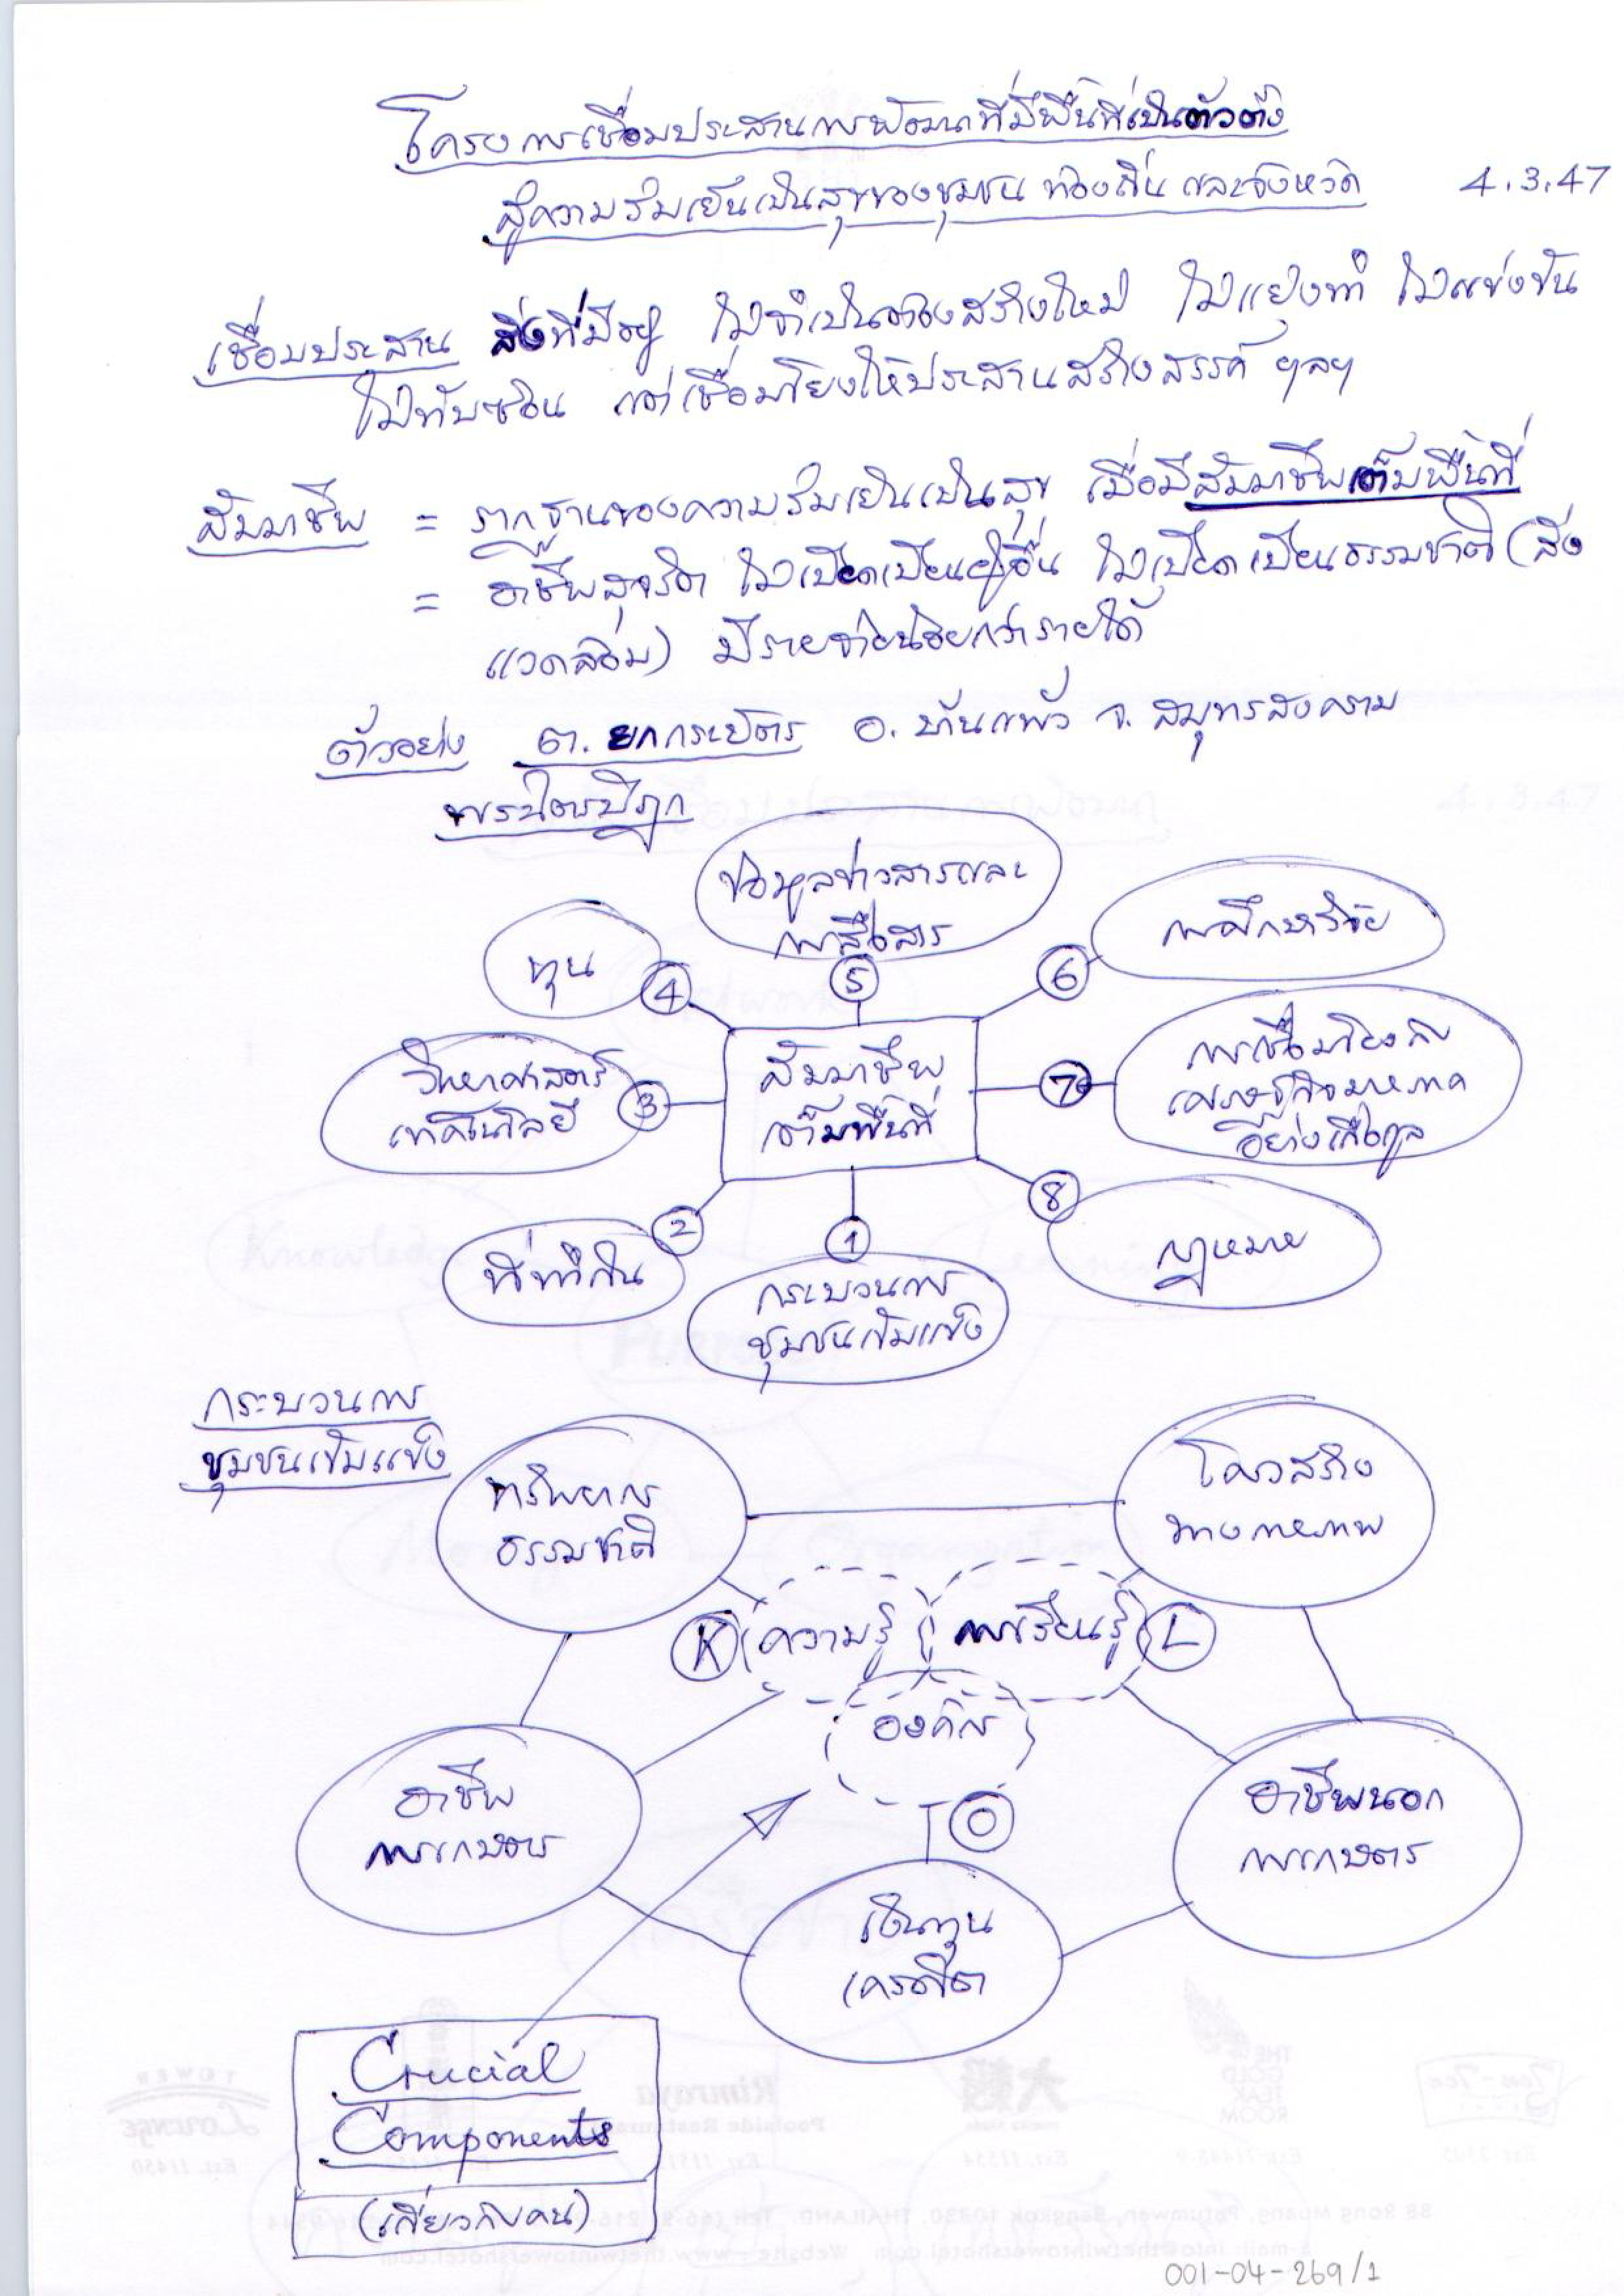 โครงการเชื่อมประสานการพัฒนาที่มีพื้นที่เป็นตัวตั้ง
สู่ความร่มเย็นเป็นสุขของชุมชน ท้องถิ่น และจังหวัด 4.3.47
เชื่อมประสาน สิ่งที่มีอยู่ ไม่จำเป็นต้องสร้างใหม่ ไม่แย่งทำ ไม่แข่งขัน
ไม่ทับซ้อน แต่เชื่อมโยงให้ประสานสร้างสรรค์ ฯลฯ
สัมมาชีพ = รากฐานของความร่มเย็นเป็นสุข เมื่อมีสัมมาชีพเต็มพื้นที่
= อาชีพสุจริต ไม่เบียดเบียนผู้อื่น ไม่เบียดเบียนธรรมชาติ (สิ่ง
แวดล้อม) มีรายจ่ายน้อยกว่ารายได้
ตัวอย่าง ต. ยกกระบัตร อ. บ้านแพ้ว จ. สมุทรสงคราม
พระไตรปิฎก
ข้อมูลข่าวสารและ
การสื่อสาร
5
ทุน
4
6
การศึกษาวิจัย
วิทยาศาสตร์
เทคโนโลยี
3
สัมมาชีพ
เต็มพื้นที่
7
การเชื่อมโยงกับ
เศรษฐกิจมหภาค
อย่างเกื้อกูล
2
ที่ทำกิน
1
กระบวนการ
ชุมชนเข้มแข็ง
8
กฎหมาย
กระบวนการ
ชุมชนเข้มแข็ง
ทรัพยากร
ธรรมชาติ
โครงสร้าง
ทางกายภาพ
K ความรู้ การเรียนรู้ L
องค์กร
O
อาชีพ
การเกษตร
อาชีพนอก
การเกษตร
เงินทุน
เครดิต
Crucial
Components
(เกี่ยวกับคน)
001-04-269/1